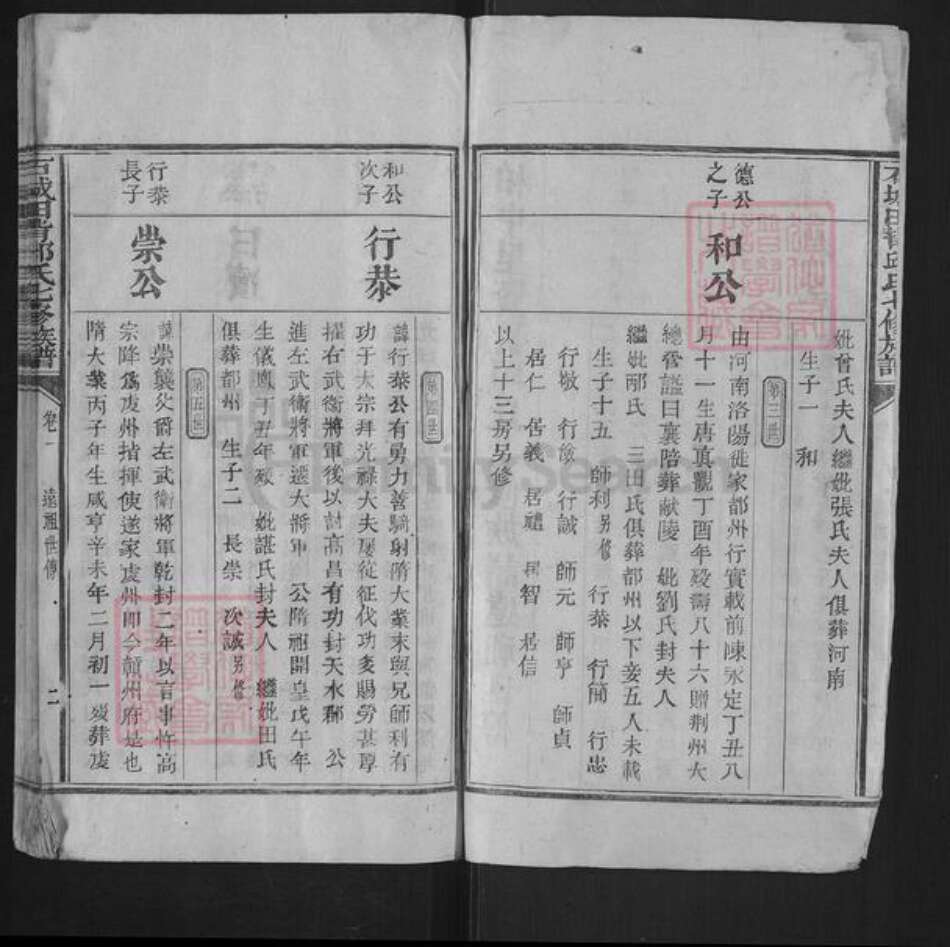 妣曾氏夫人繼妣張氏夫人俱葬河南
生子一 和
第三世
德公之子
和公
由河南洛陽徙家都州行實載前陳永定丁丑八
月十一生唐真觀丁酉年歿壽八十六贈荆州大
總管諡曰襄陪葬献陵 妣劉氏封夫人
繼妣邴氏 三田氏俱葬都州以下妾五人未載
生子十五 師利另修 行恭 行簡 行忠
行敬 行儉 行誠 師元 師亨 師貞
居仁 居義 居禮 居智 居信
以上十三房另修
第四世
和公次子
行恭
諱行恭公有勇力善騎射隋大業末與兄師利有
功于太宗拜光祿大夫屢從征伐功多賜勞甚厚
擢右武衛將軍後以討高昌有功封天水郡 公
進左武衛將軍遷大將軍 公隋祖開皇戊午年
生儀鳳丁丑年歿 妣諶氏封夫人 繼妣田氏
俱葬都州 生子二 長崇 次誠另修
第五世
行恭長子
崇公
諱崇襲父爵左武衛將軍乾封二年以言事忤高
宗降爲虔州指揮使遂家虔州即今贛州府是也
隋大業丙子年生咸亨辛未年二月初一歿葬虔
氏七修族譜
卷一
遠祖世傳
二